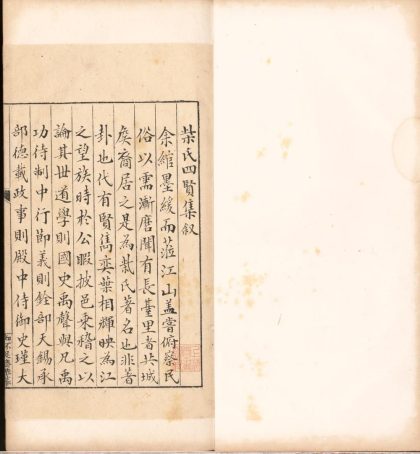 柴氏四賢集叙
余綰墨綬而蒞江山盖嘗俯察民
俗以需漸磨聞有長臺里者共城
侯裔居之是為柴氏著名也非著
卦也代有賢雋奕葉相輝映為江
之望族時於公暇披邑乘稽之以
論其世道學則國史禹聲與凡禹
功待制中行節義則銓部天錫承
部德載政事則殿中侍御史瑾大